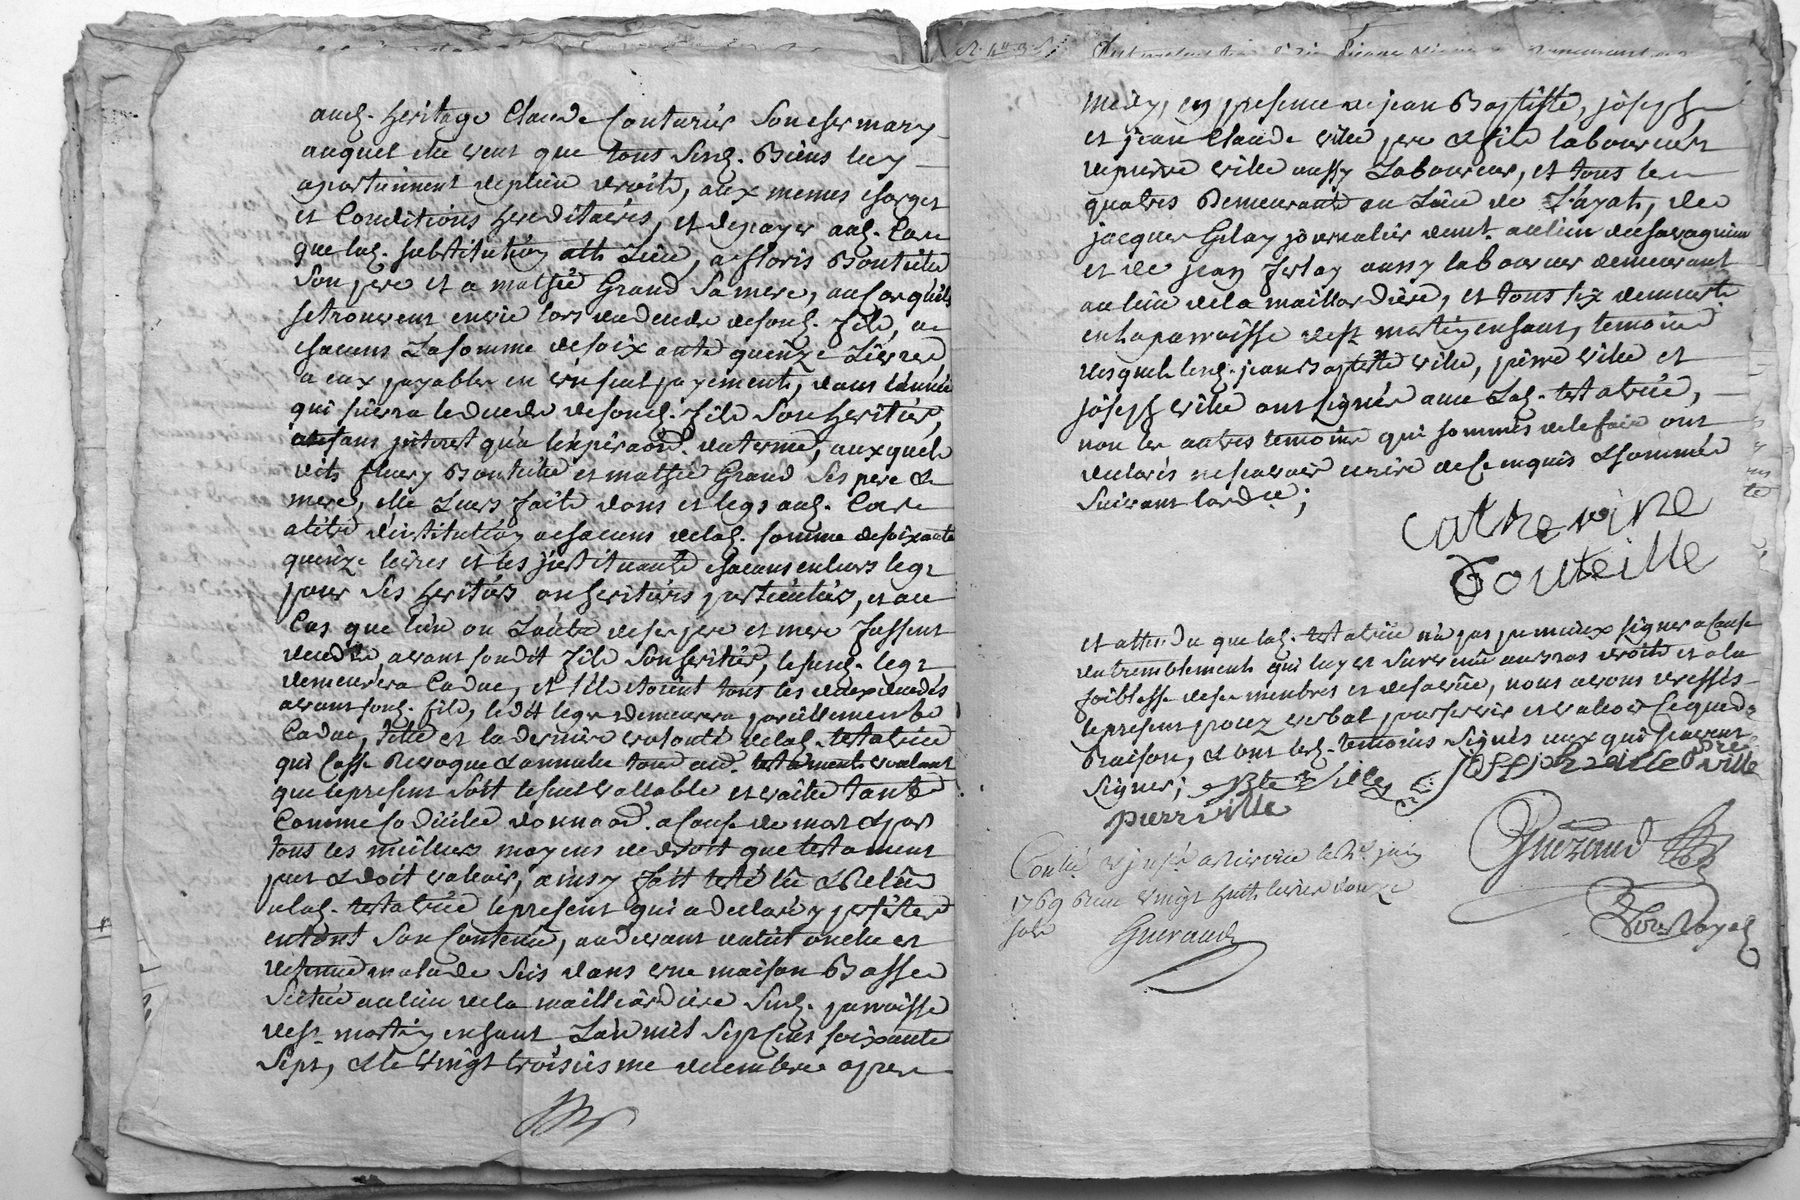 aud. heritage Claude Couturier Son cher mary
auquel elle veut que tous Sesd. Biens luy
apartiennent de plein droits, aux memes charges
et Conditions hereditaires, et de payer aud. Cas
que lad. substitution aits Lieu, a floris Bouteille
Son pere et a mathie Grand Sa mere, au cas quils
se trouvent envie lors du deces de sond. fils, a
chacuns La somme de soixante quinze Livres
a eux payables en un seul payements, dans l'année
qui suivra le deces de sond. fils Son heritier,
sans interet qu'a lexpiraõn. du terme, auxquels
dits fleury Bouteille et mathie Grand Ses pere &
mere, elle Leurs fait dons et legs aud. Cas
a titre d'institution a chacuns de lad. somme de soixante
quinze livres et les instituants chacuns en leurs legs
pour Ses heritiers ou heritieres particuliers, et au
Cas que l'un ou L'autre de ses pere et mere fussent
decedés, avant sondit fils Son heritier, lesusd. legs
demeurera Caduc, et s'ils etoient tous les deux decedés
avant sond. fils, ledit legs demeurera pareillements
Caduc, telle est la derniere volonté de lad. testatrice
qui Casse Revoque & annulle tous aud. testaments voulant
que le present Soit le seul vallable et vaille tant
Comme Codicille donnaõn. a Cause de mort & par
tous les meilleurs moyens de droit que testament
peut & doit valoir, ainsy fait testé lû & Relû
a lad. testatrice le present qui a declaré y persister
entout Son Contenu, au devant du lit ou elle est
detenue malade Sis dans une maison Basse
Scitué au lieu de la mailliardiere Susd. parroisse
de st. martin en haut L'an mil Sept Cent soixante
Sept, & le Vingt troisiesme decembre apres
midy, en presence de jean Baptiste, joseph
et jean Claude ville pere & fils laboureurs
de pierre ville aussy Laboureur, et tous les
quatres Demeurants au Lieu de L'ayat, de
jacques Gilay journalier demt. au lieu de
et de jean ferlay aussy laboureur demeurant
au lieu de la maillardiere, et tous six demeurts
en la parroisse de st. martin en haut, temoins
desquels lesd. jean Baptiste ville, pierre ville et
joseph ville ont signés avec Lad. testatrice,
non les autres temoins qui sommés de le faire ont
declarés ne scavoir ecrire de ce enquis & sommés
Suivant lordce.;
Catherine
Bouteille
et attendu que lad. testatrice n'a pas pu mieux signer a Cause
du tremblements qui luy est Survenu au bras droits et a la
foiblesse de ses membres et de sa vüe, nous avons dressés
le present procez verbal pour servir et valoir Ce que de
Raison, & ont lesd. temoins Signés ceux qui scavent
Signer; jBte Ville joseph ville
pierre ville
Guéraud
Controllé
1769 Reçu vingt huit livres douze
sols
Guéraud